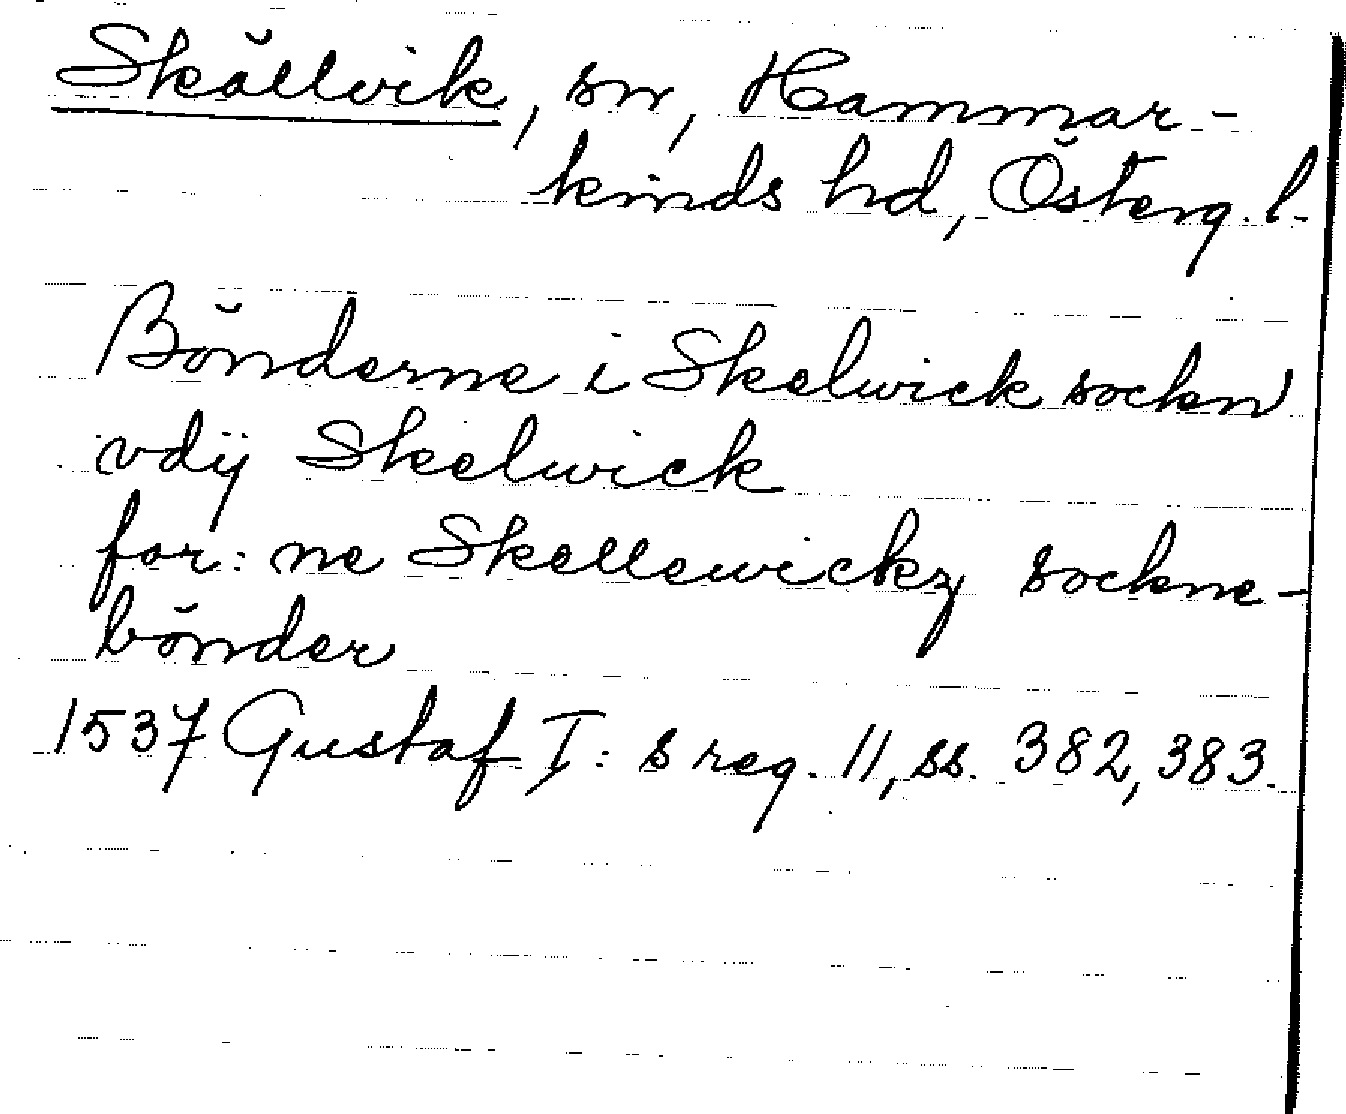 Skällvik, sn, Hammar-
kinds hd, Österg. l.
Bönderne i Skelwick sockn
vdij Skelwick
for: ne Skellewickz sockne-
bönder
1537 Gustaf I: s reg. 11, ss. 382, 383.